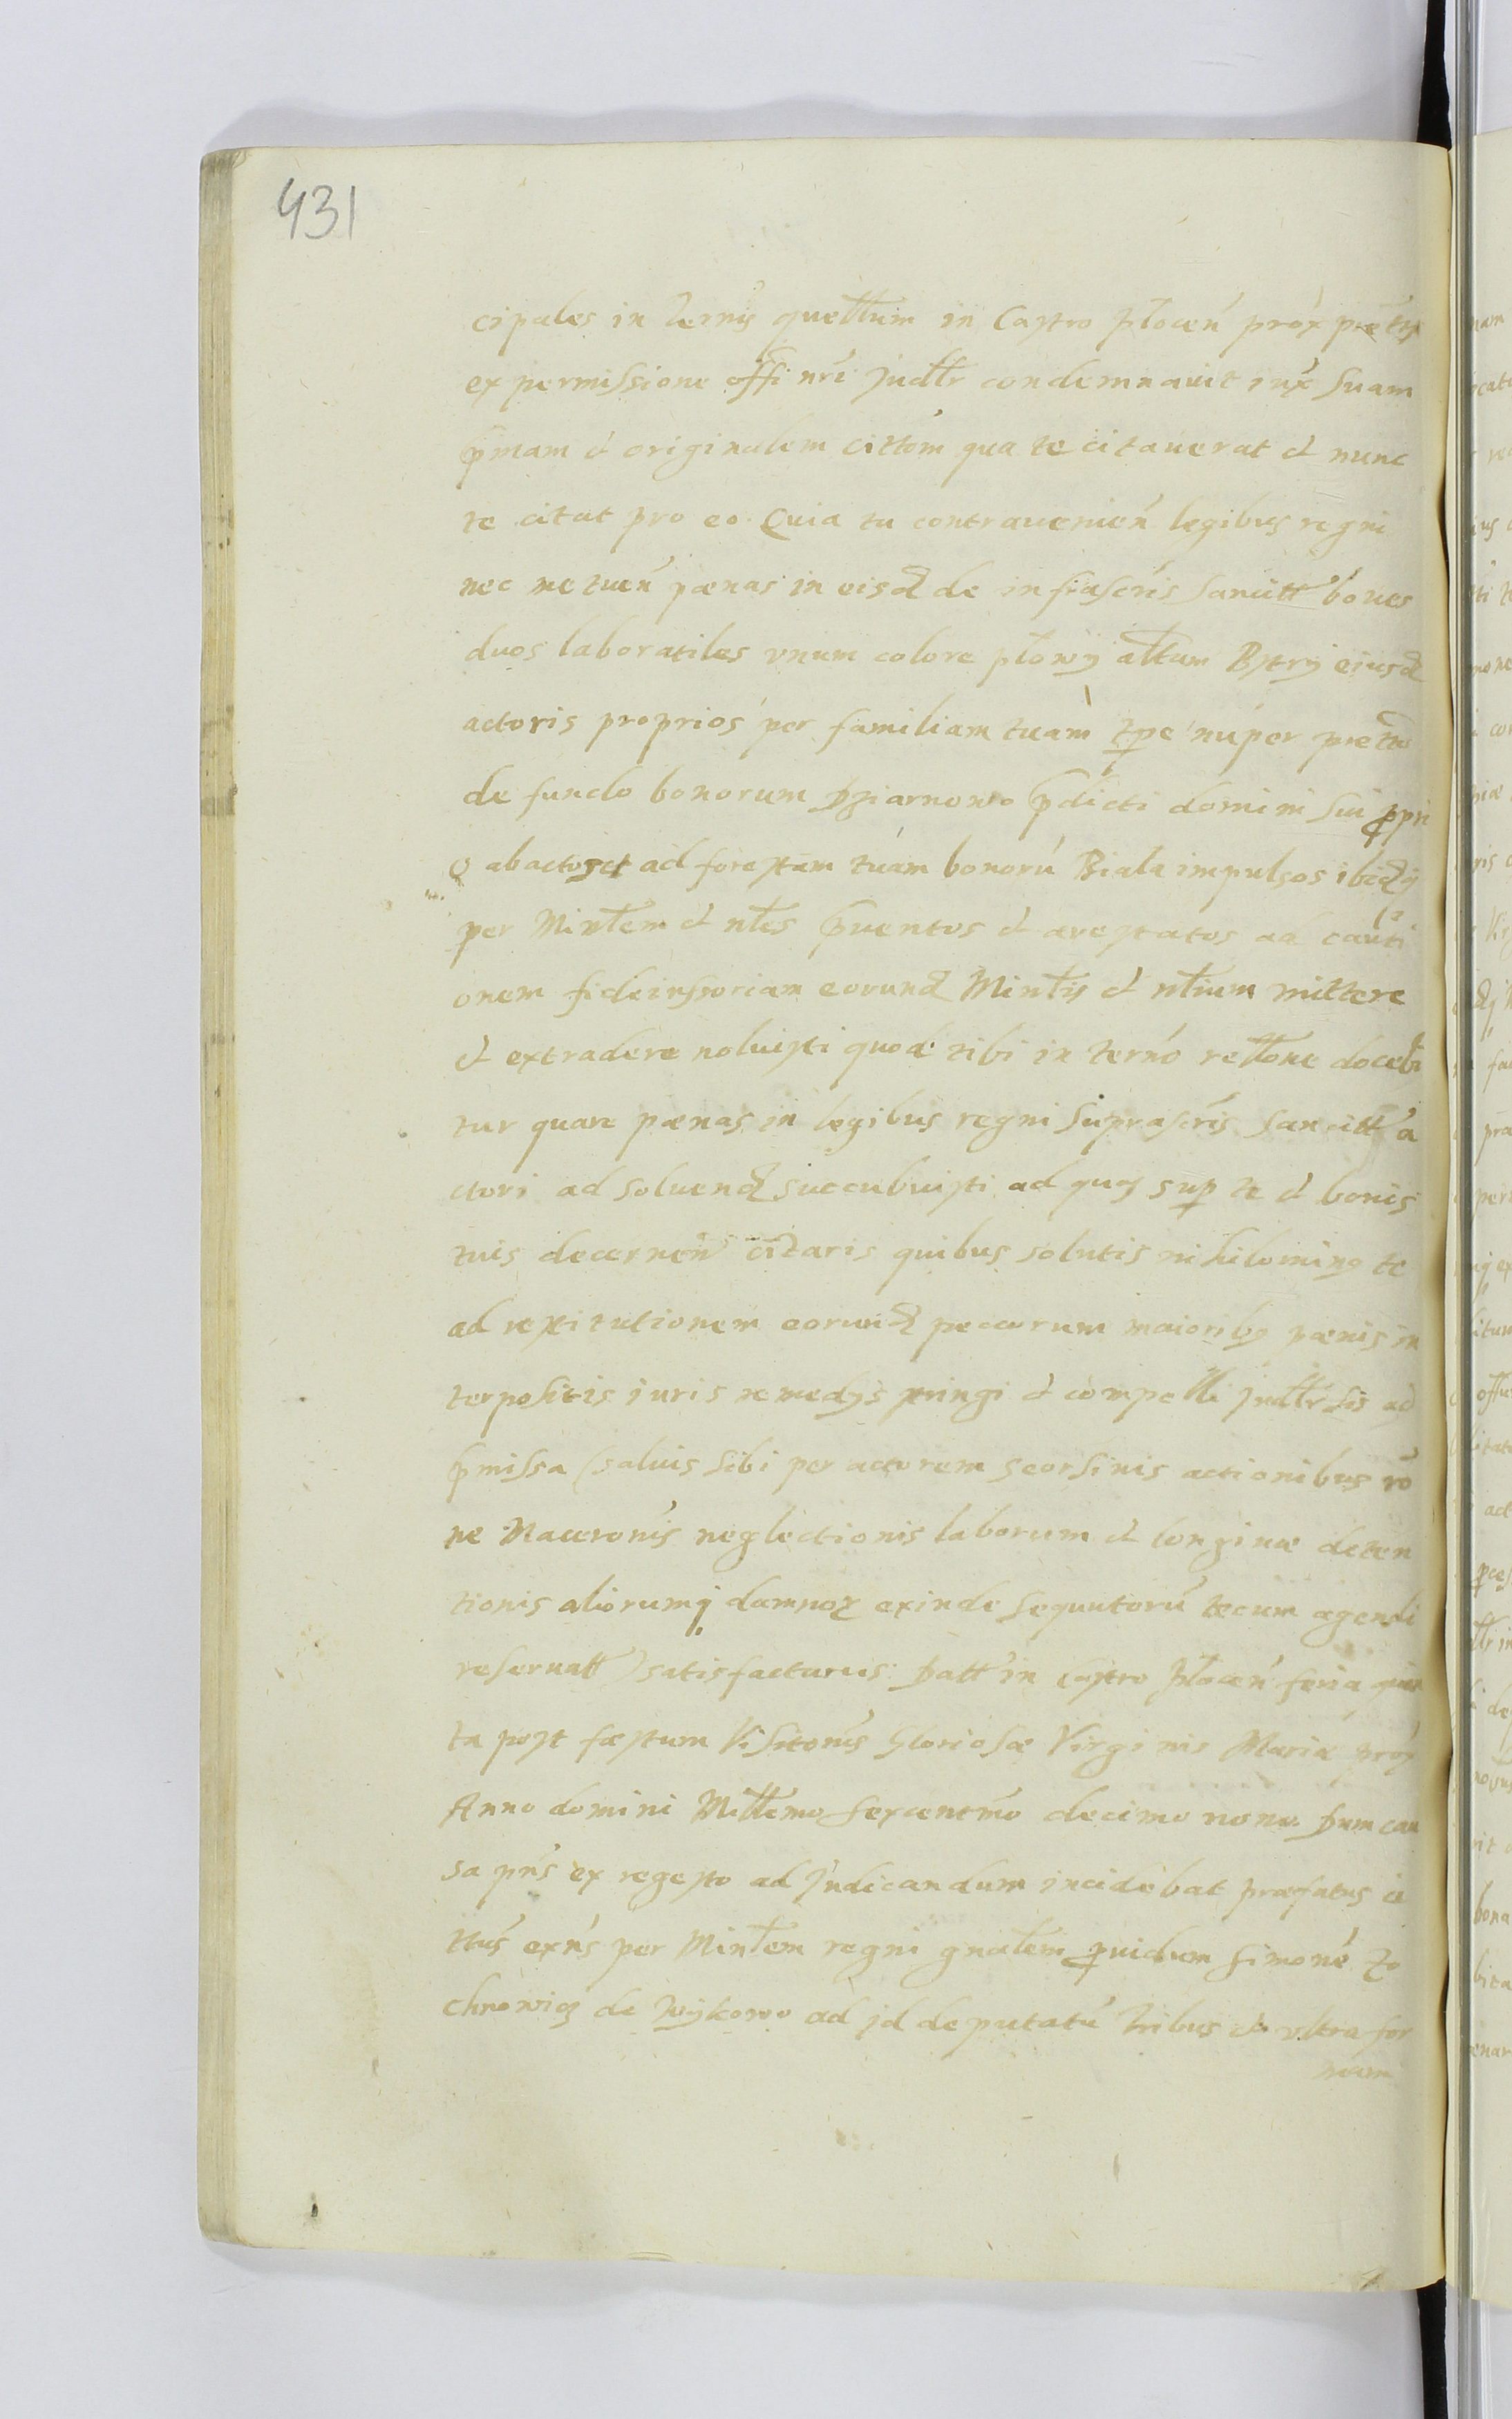 431
cipales in Termis querellarum in Castro płocen prox praet
ex permissione offi nri judltr condemnauit iux suam
pmam et originalem cittom qua te citauerat et nunc
te citat pro eo. Quia tu contrauenien legibus regni
nec metuen pœnas in eisd de infrascris sancitt boues
duos laboratiles vnum colore płowÿ altum Bstrÿ eiusd
actoris proprios per familiam tuam tpe nuper praetto
de fundo bonorum Dziarnowo pdicti domini sui ppri
o abactos et ad forestam tuam bonorū Biała impulsos ibidq
per Mintlem et ntles pventos et arestatos ad cauti
onem fideiussoriam eorund Mintlis et ntlium mittere
et extradere noluisti quod tibi in termo rellone docebi
tur quare pœnas in legibus regni suprascris sancitt a
ctori ad soluend succubuisti ad quas sup te et bonis
tuis decernen citaris quibus solutis nihilomin9 te
ad restitutionem eorund peccorum maiorib9 pœnis in
terpositis iuris remedÿs stringi et compelli judltr sis ad
pmissa (saluis sibi per actorem seorsiuis actionibus ro
ne Maceronis neglectionis laborum et longinæ deten
tionis aliorumq damnor exinde sequutorū tecum agendi
reseruatt) satisfacturus. Datt in Castro płocen feria quin
ta post fæstum Visitonis Gloriosæ Virginis Mariæ prox
Anno domini Millemo sexcentmo decimo nono. Dum cau
sa pns ex regesto ad Judicandum incidebat præfatus ci
ttus exns per Mintlem regni gnalem pvidum Simonē
chnowicz de Wÿkowo ad id deputatū tribus et vltra for
mam